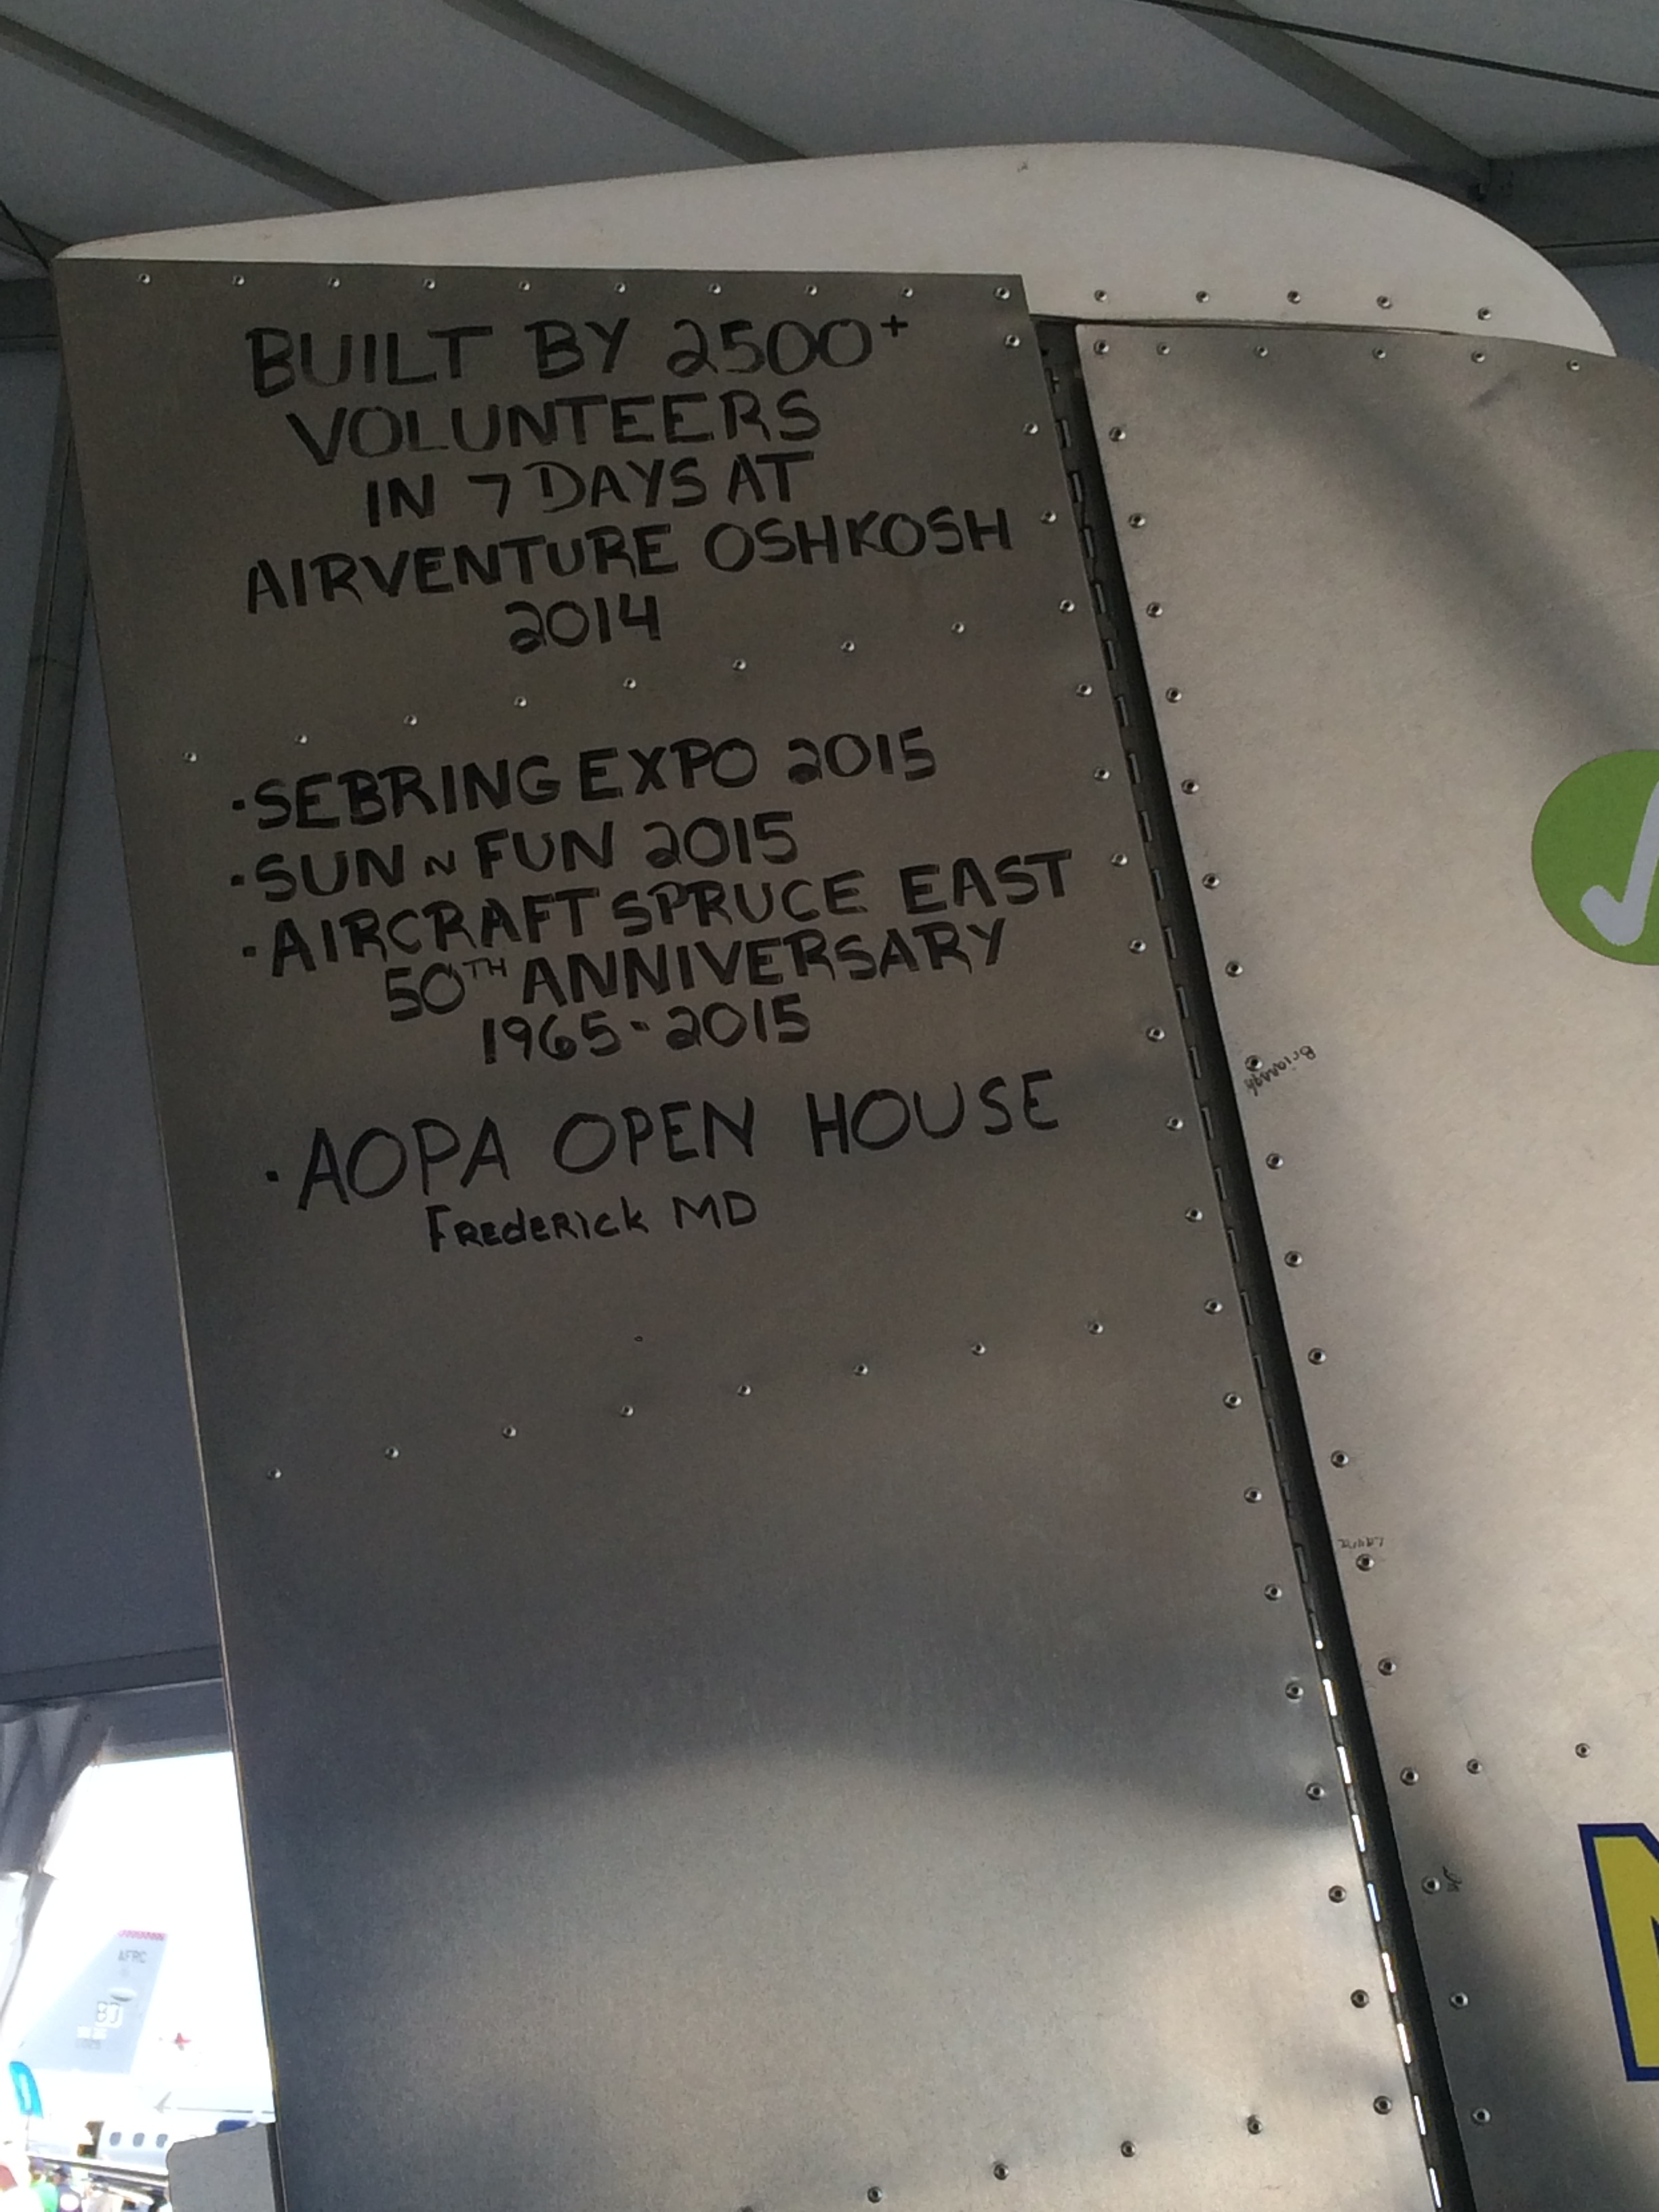 BUILT BY 2500+
VOLUNTEERS
IN 7 DAYS AT
AIRVENTURE OSHKOSH
2014
·SEBRING EXPO 2015
·SUN N FUN 2015
·AIRCRAFT SPRUCE EAST
50TH ANNIVERSARY
1965-2015
·AOPA OPEN HOUSE
FREdERICK MD
AFRC
BD